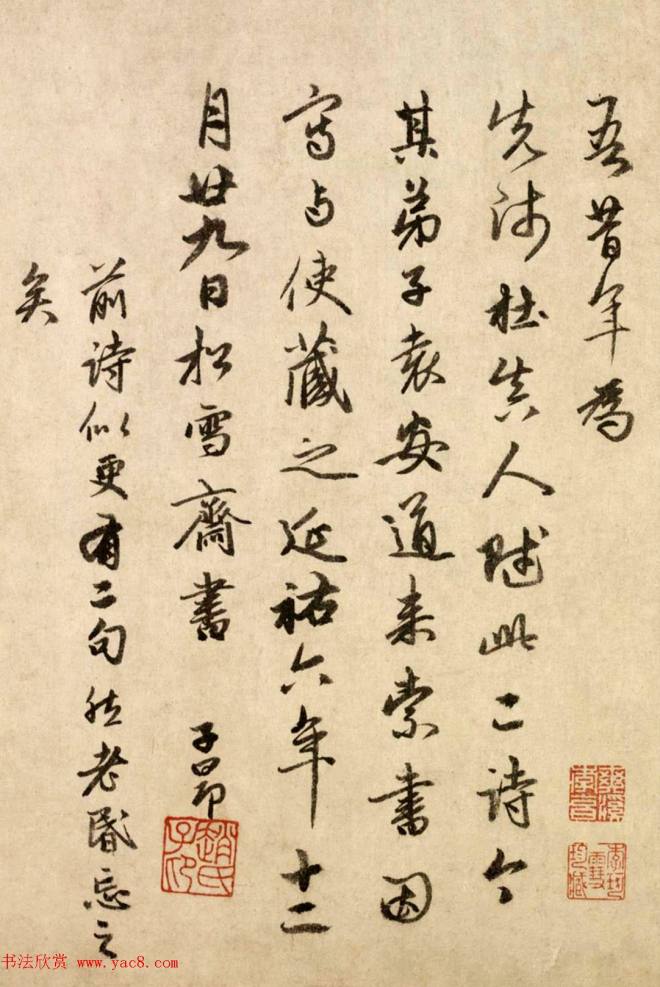 吾昔年為
先師杜真人賦此二詩今
其弟子袁安道来索書因
寫与使藏之延祐六年十二
月廿九日松雪齋書
子昂
趙氏子昂
前詩似更有二句然老昏忘之
矣
书法欣赏 www.yac8.com